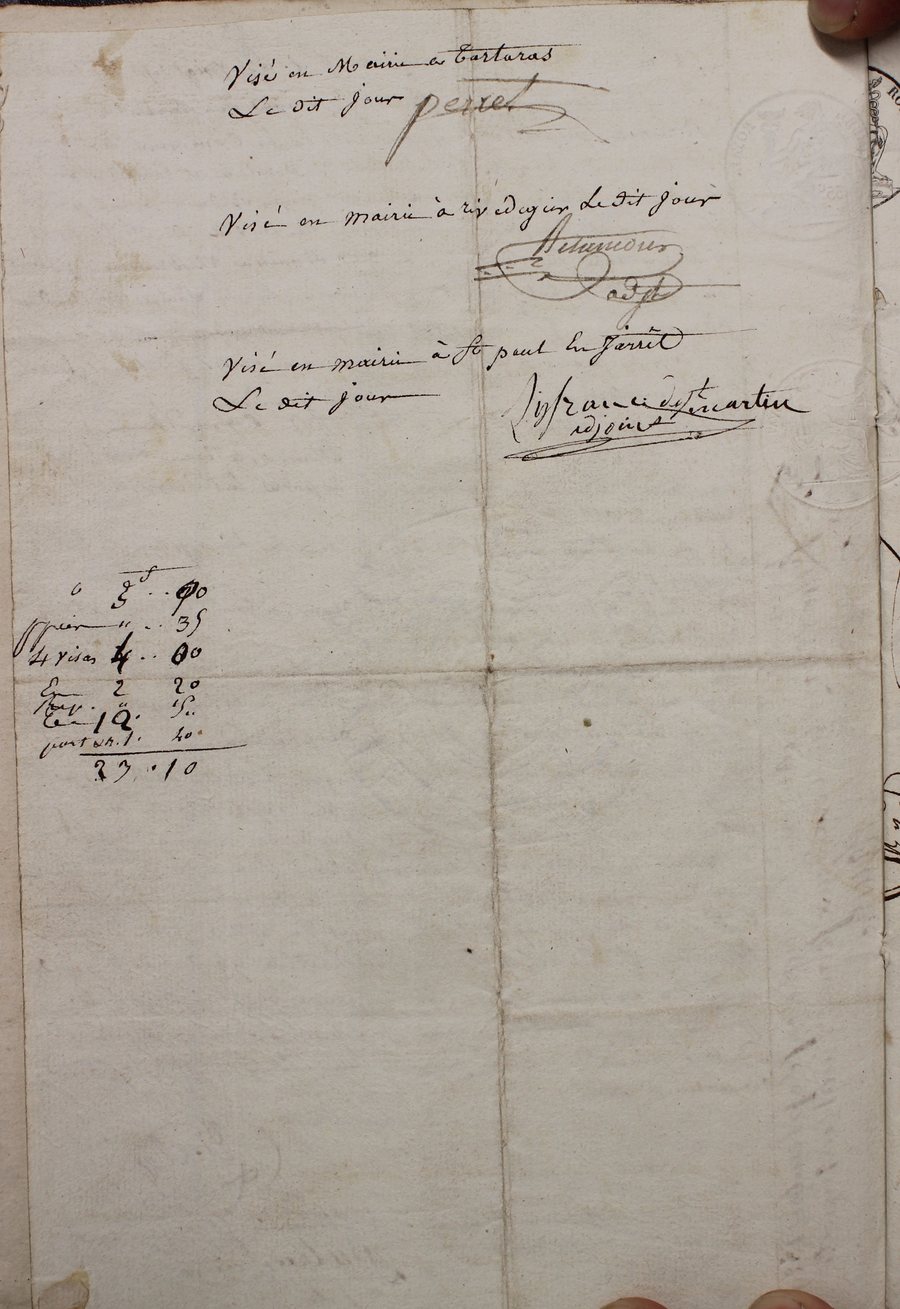 Visé en Mairie a Tartaras
Le dit Jour perret
Visé en mairie à rivedegier Le dit Jour
adjt
Visé en mairie à St paul En Jarrêt
Le dit Jour
Lisfranc de St martin
adjoint
o 3f .. 90
ppier " .. 35
4 visas 4 .. 00
En 2 20
10 . 50
port &r. 1. 20
23 . 10